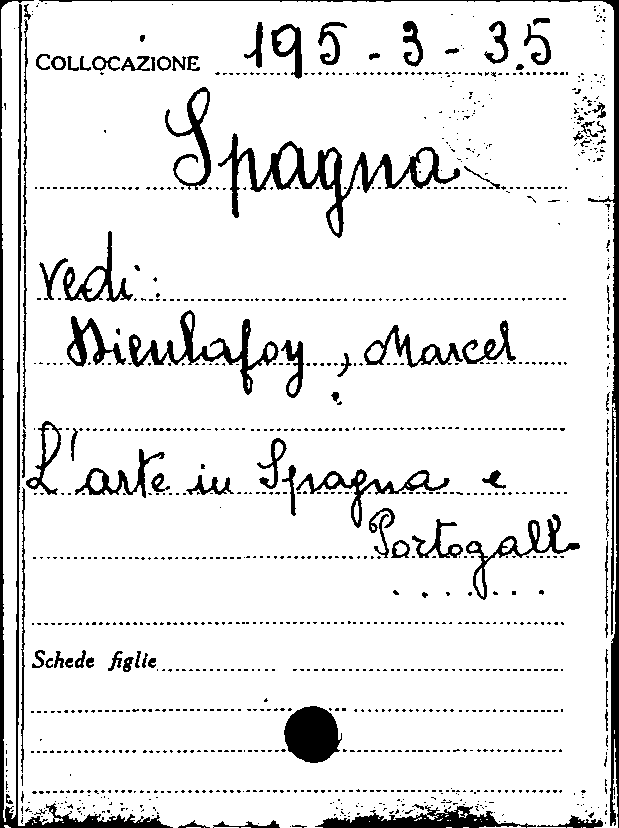 COLLOCAZIONE 195-3-35
Spagna
vedi:
Dieulafoy, Marcel
L'arte in Spagna e
Portogallo
.......
Schede figlie